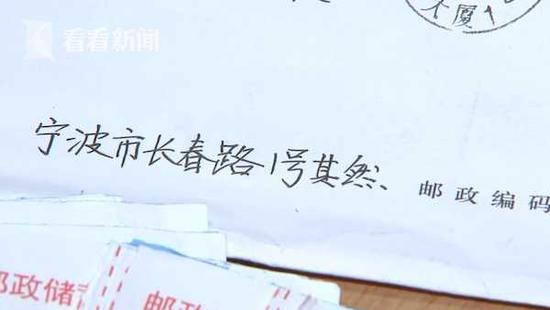 看看新闻
宁波市长春路1号其然、
邮政编码
邮政储
邮